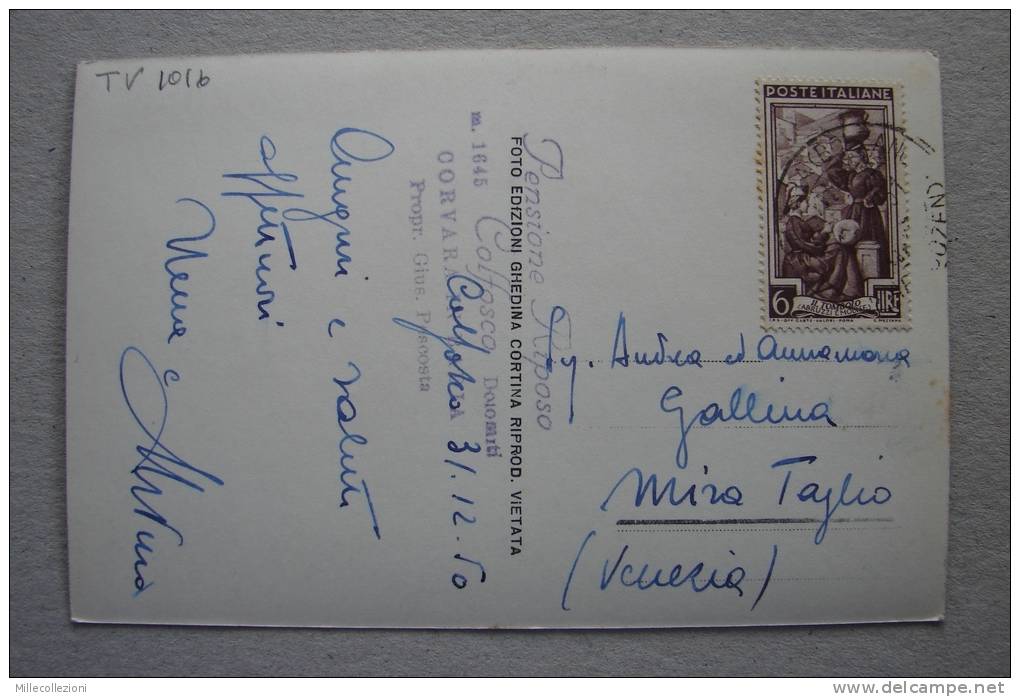 TV 1016
Auguri e saluti
affettuosi
Nenna e
Colfosco 31.12.50
Pensione Riposo
m. 1645 Colfosco Dolomiti
CORVARA
Propr. Gius. Pescosta
FOTO EDIZIONI GHEDINA CORTINA RIPROD. VIETATA
POSTE ITALIANE
6 LIRE
IL TOMBOLO
(ABRUZZI E MOLISE)
Andrea ed Annamaria
Gallina
Mira Taglio
(Venezia)
Millecollezioni
delcampe.net